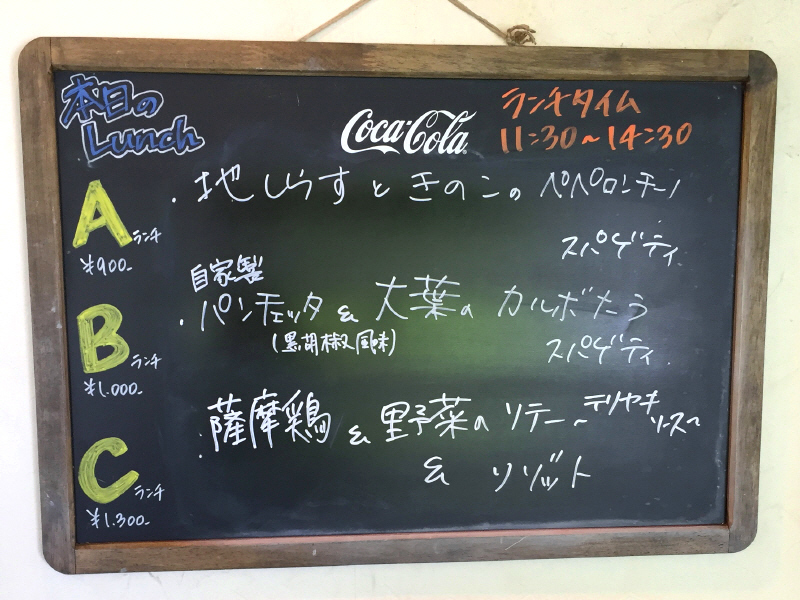 本日の
Lunch
Coca-Cola
ランチタイム
11:30~14:30
A ランチ
¥900-
・地しらすときのこの ペペロンチーノ
スパゲティ
B ランチ
¥1.000-
自家製
・パンチェッタ & 大葉の カルボナーラ
(黒胡椒風味)
スパゲティ
C ランチ
¥1.300-
・薩摩鶏 & 野菜の ソテー ~テリヤキ
ソース~
& リゾット